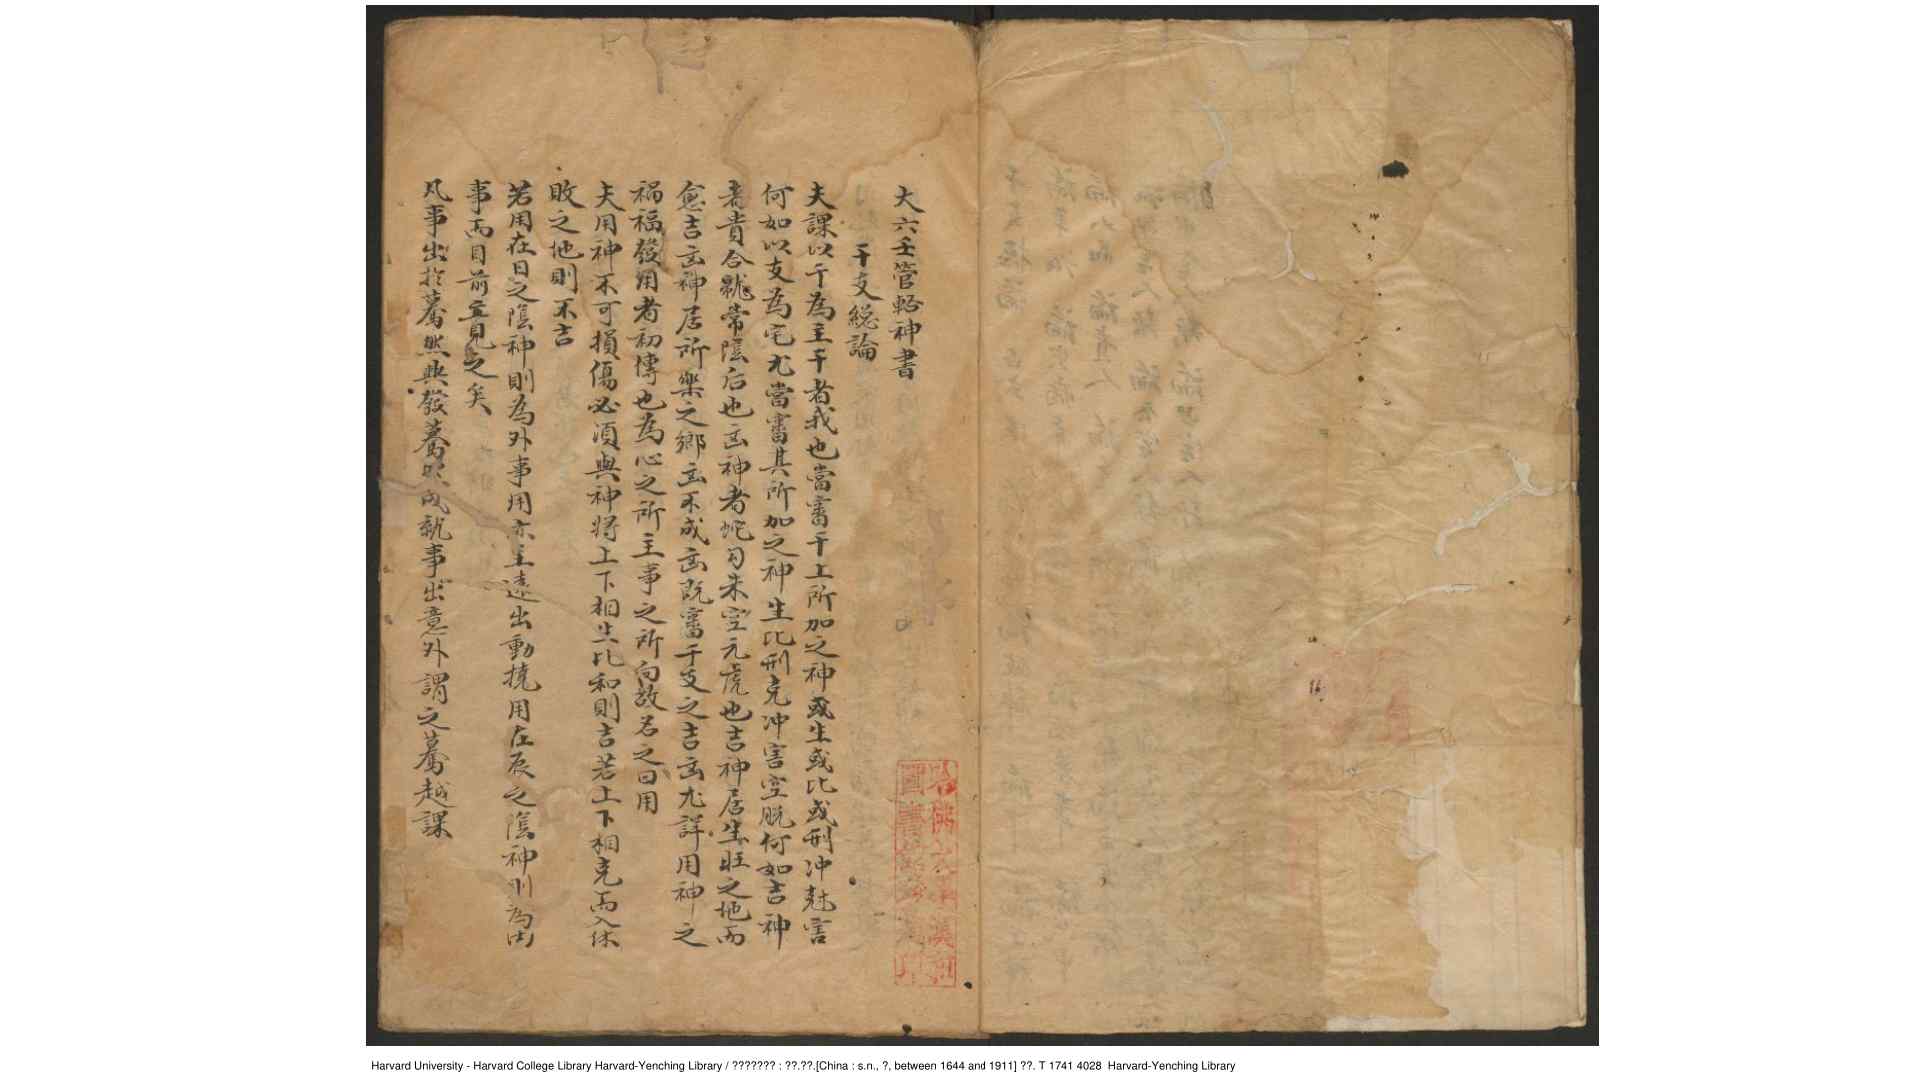 大六壬管輅神書
干支總論
夫課以干為主干者我也當審干上所加之神或生或比或刑冲尅害
何如以支為宅尤當審其所加之神生比刑克冲害空脱何如吉神
者貴合龍常陰后也凶神者蛇勾朱空元虎也吉神居生旺之地而
愈吉凶神居所樂之鄉凶不成凶既審干支之吉凶尤詳用神之
禍福發用者初傳也為心之所主事之所向故名之曰用
夫用神不可損傷必須與神将上下相生比和則吉若上下相克而入休
敗之地則不吉
若用在日之陰神則為外事用亦主遠出動撓用在辰之陰神則為内
事而目前立見之矣
凡事出於驀然與發驀然成就事出意外謂之驀越課
哈佛大學漢和
圖書館珍藏印
Harvard University - Harvard College Library Harvard-Yenching Library / ??????? : ??.??.[China : s.n., ?, between 1644 and 1911] ??. T 1741 4028 Harvard-Yenching Library